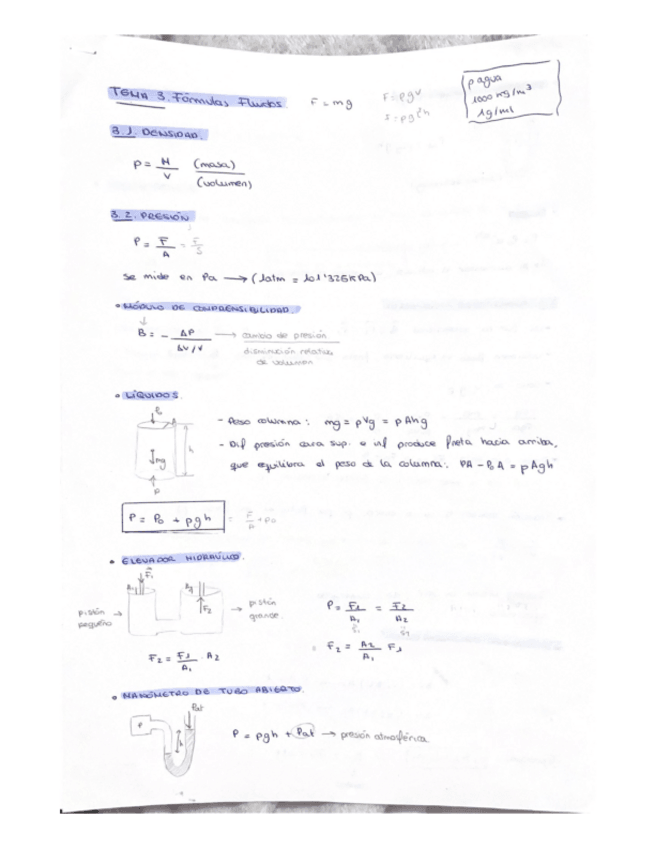 TEMA 3. Fórmulas Fluidos. F = mg
F = ρgV
ρ agua
1000 kg/m³
1g/ml
3.1. DENSIDAD.
ρ = M/V (masa)/(volumen)
3.2. PRESIÓN
P = F/A = F/S
Se mide en Pa → (1atm = 101'325KPa)
• MÓDULO DE COMPRENSIBILIDAD.
B = - ΔP/(ΔV/V) → cambio de presión / disminución relativa de volumen
• LÍQUIDOS.
P₀
A
h
mg
P
- Peso columna: mg = ρVg = ρAhg
- Dif presión cara sup. e inf produce fneta hacia arriba,
que equilibra el peso de la columna: PA - P₀A = ρAgh
P = P₀ + ρgh = F/A + P₀
• ELEVADOR HIDRÁULICO.
F₁
A₁ A₂
F₂
pistón pequeño →
→ pistón grande.
P = F₁/A₁ = F₂/A₂
S₁ S₂
F₂ = F₁/A₁ · A₂
F₂ = A₂/A₁ F₁
• MANÓMETRO DE TUBO ABIERTO.
Pat
P
h
P = ρgh + Pat → presión atmosférica